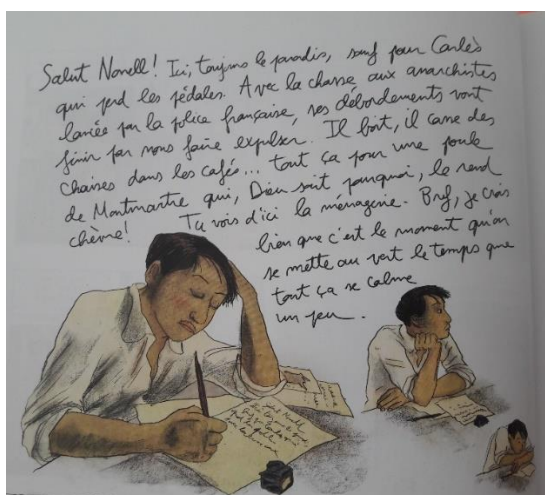 Salut Nonell! Ici, toujours le paradis, sauf pour Carlès
qui perd les pédales. Avec la chasse aux anarchistes
lancée par la police française, ses débordements vont
finir par nous faire expulser. Il boit, il casse des
chaises dans les cafés... tout ça pour une poule
de Montmartre qui, Dieu sait pourquoi, le rend
chèvre! Tu vois d'ici la ménagerie. Bref, je crois
bien que c'est le moment qu'on
se mette au vert le temps que
tout ça se calme
un peu.